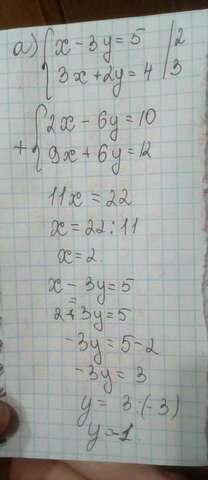 а) { x - 3y = 5 | 2
3x + 2y = 4 | 3
+ { 2x - 6y = 10
9x + 6y = 12
11x = 22
x = 22 : 11
x = 2.
x - 3y = 5
=
2 + 3y = 5
-3y = 5 - 2
-3y = 3
y = 3 · (-3)
y = -1